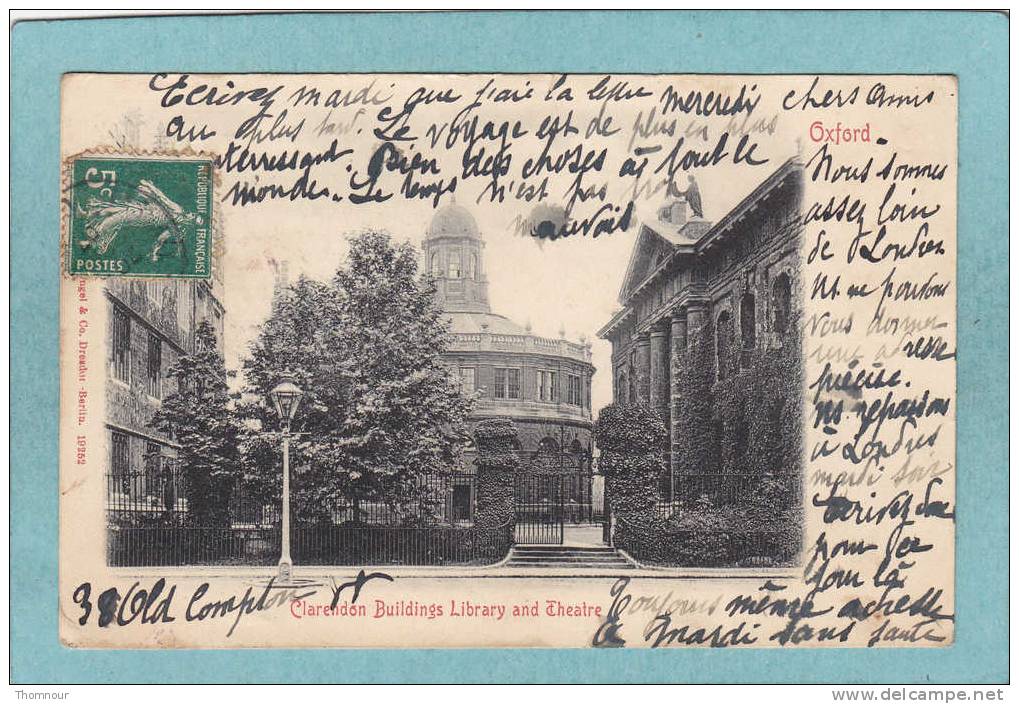 Ecrivez mardi que j'aie la lettre mercredi chers Amis
au plus tard. Le voyage est de plus en plus
interressant. Bien des choses à tout le
monde. Le temps n'est pas trop
mauvais
Oxford
Nous sommes
assez loin
de Londres
Nt ne pouvons
vous donner
une adresse
précise.
Ns. repassons
à Londres
mardi soir
Ecrivez donc
pour ce
jour là
Toujours même adresse
à mardi sans faute
38 Old Compton St
Clarendon Buildings Library and Theatre
5c
RÉPUBLIQUE FRANÇAISE
POSTES
& Co. Dresden-Berlin. 19252
Thomnour
http://www.delcampe.net